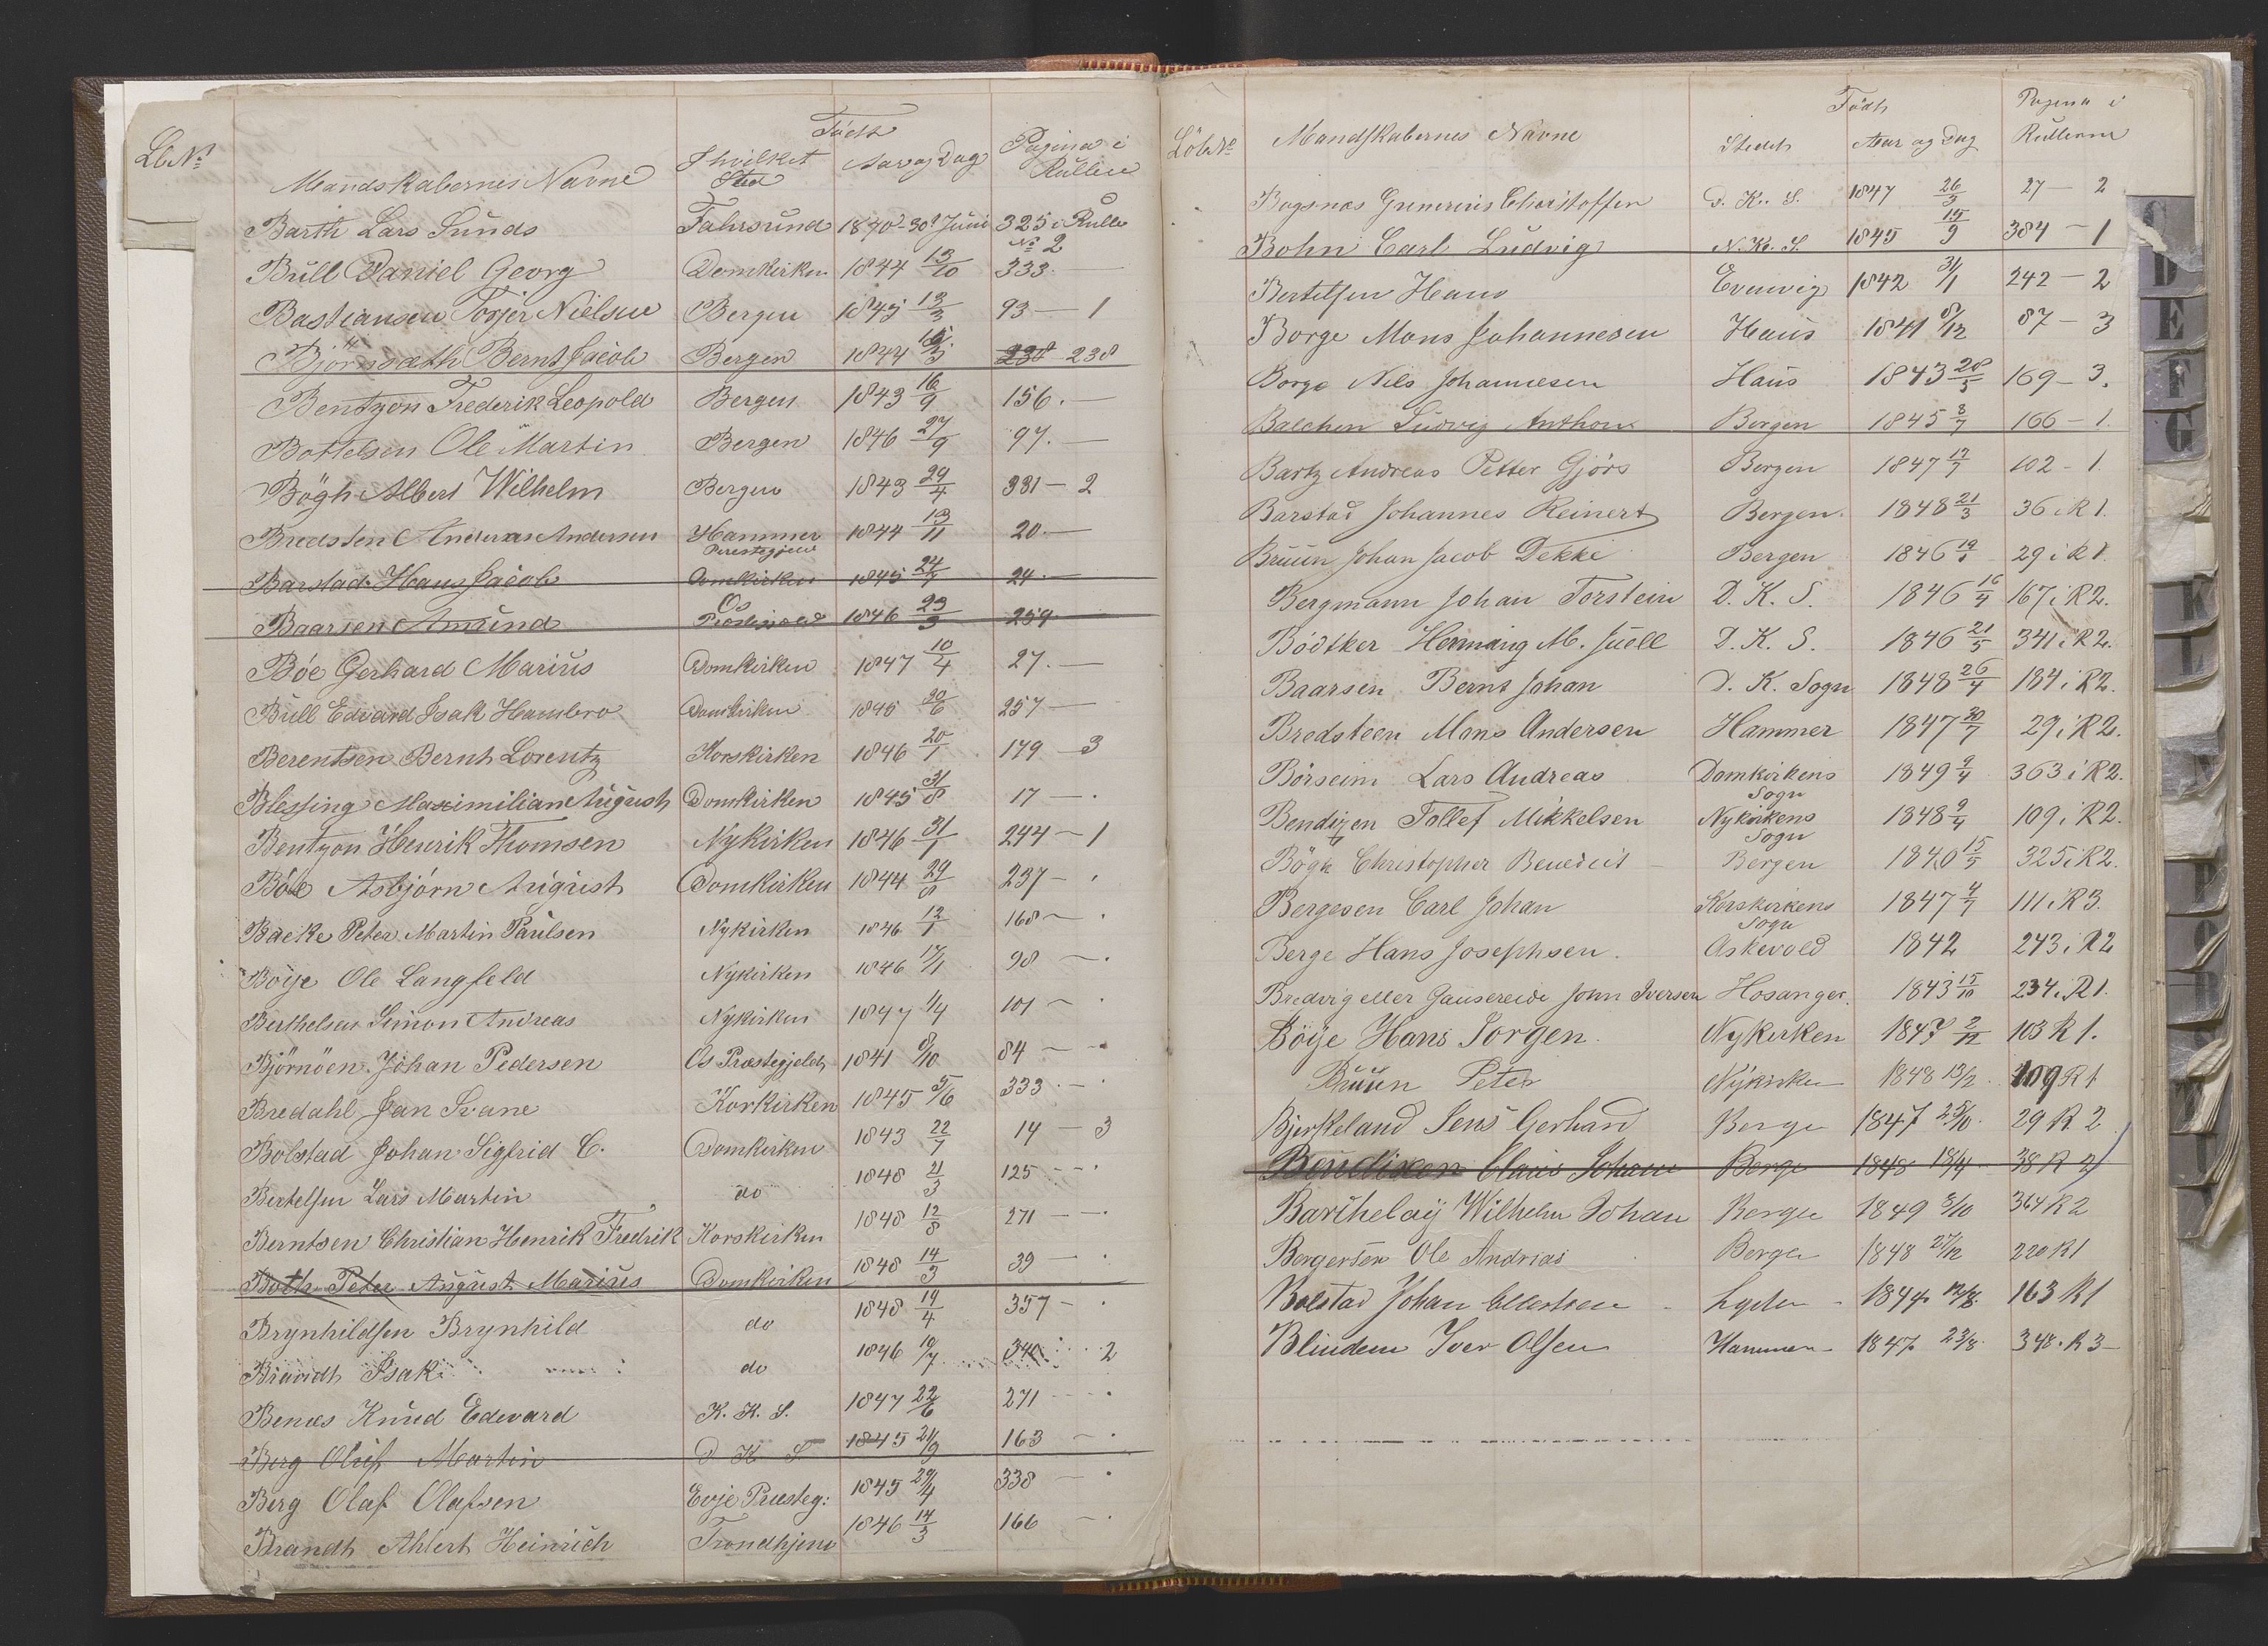 Lb. No
Mandskabernes Navne
I hvilket Sted
Født
Aar og Dag
Pagina i Rullen
Barth Lars Sunds Fahrsund 1840 - 30t Juni 325 i Rulle No 2
Bull Daniel Georg Domkirken 1844 13/10 333. —
Bastiansen Torjer Nielsen Bergen 1845 13/3 93 — 1
Bjørnsæth Bernt Jacob Bergen 1844 238 238
Bentzon Frederik Leopold Bergen 1843 16/9 156. —
Bottelsen Ole Martin Bergen 1846 27/9 97. —
Bøgh Albert Wilhelm Bergen 1843 29/4 381 — 2
Bredsten Anders Andersen Hammer Præstegjeld 1844 13/11 20. —
Barstad Hans Jacob Domkirken 1845 24/7 24. —
Baarsen Amund Os Præstegjeld 1846 23/3 259
Bóe Gerhard Marius Domkirken 1847 10/4 27. —
Bull Edvard Isak Hambro Domkirken 1845 20/6 257 —
Berentsen Bernt Lorentz Korskirken 1846 20/1 179 — 3
Blessing Maximilian August Domkirken 1845 31/8 17 — .
Bentzon Henrik Thomsen Nykirken 1846 31/1 244 — 1
Böe Asbjørn August Domkirken 1844 29/8 237 — .
Backe Peter Martin Paulsen Nykirken 1846 12/1 168 — .
Böije Ole Langfeld Nykirken 1846 17/1 98 — .
Berthelsen Simon Andreas Nykirken 1847 1/4 101 — .
Björnöen Johan Pedersen Os Præstegjeld 1841 8/10 84 — .
Bredahl Jan Svane Korkirken 1845 5/6 333 . — .
Bolstad Johan Sigfrid C. Domkirken 1843 22/7 14 — 3
Bertelsen Lars Martin do 1848 21/3 125 — .
Berntsen Christian Henrik Fredrik Korskirken 1848 12/8 271 — .
Both Peter August Marius Domkirken 1848 14/3 39 — .
Brynhildsen Brynhild do 1848 19/4 357 — .
Isak do 1846 19/7 340 2
Benæs Knud Edevard K. K. S. 1847 22/6 271 — .
Berg Oluf Martin D K S 1845 21/9 163 — .
Berg Olaf Olafsen Evje Præsteg: 1845 29/4 338 — .
Brandt Ahlert Heinrich Trondhjem 1846 14/3 166 — .
Löb No
Mandskabernes Navne
Født
Stedet
Aar og Dag
Pagina i Rullerne
Christoffen D. K. S. 1847 26/3 27 — 2
Bohn Carl Ludvig N. K. S. 1845 15/9 384 — 1
Bertelsen Hans Evenvig 1842 31/1 242 — 2
Borge Mons Johannesen Haus 1841 8/12 87 — 3
Borge Nils Johannesen Haus 1843 28/5 169 — 3.
Balchen Ludvig Anthon Bergen 1845 8/7 166 — 1.
Bartz Andreas Petter Gjörs Bergen 1847 17/7 102 - 1
Barstad Johannes Reinert Bergen. 1848 21/3 36 i R 1.
Bruun Johan Jacob Dekke Bergen 1846 29 i R 1.
Bergmann Johan Torstein D. K. S. 1846 16/4 167 i R 2.
Bödtker Henning M. Juell D. K. S. 1846 21/5 341 i R 2.
Baarsen Bernt Johan D. K. Sogn 1848 26/4 184 i R 2.
Bredsteen Mons Andersen Hammer 1847 30/7 29 i R 2.
Börseim Lars Andreas Domkirkens Sogn 1849 9/4 363 i R 2.
Bendixen Tollef Mikkelsen Nykirkens Sogn 1848 9/4 109 i R 2.
Bögh Christopher Benedict Bergen 1840 15/5 325 i R 2.
Bergesen Carl Johan Korskirkens Sogn 1847 4/7 111 i R 3.
Berge Hans Josephsen. Askevold 1842 243 i R 2
Bredvig eller Gausereide John Iversen Hosanger. 1843 15/10 234 i R 1.
Böije Hans Jorgen. Nykirken 1847 2/12 103 R 1.
Bruun Peter Nykirken 1848 13/2 109 R 1
Bjerkeland Jens Gerhard Bergen 1847 25/10. 29 R. 2
Bendixen Claus Johan Bergen 1848 18/4 38 R 2
Barthelaij Wilhelm Johan Bergen 1849 3/10 364 R 2
Bergersen Ole Andreas Bergen 1848 27/12 220 R 1
Bolstad Johan Ellertsen 163 R 1
Blindem Iver Olsen Hammer 1847 23/8 348. R 3 —
C
D
E
F
G
K
L
N
P